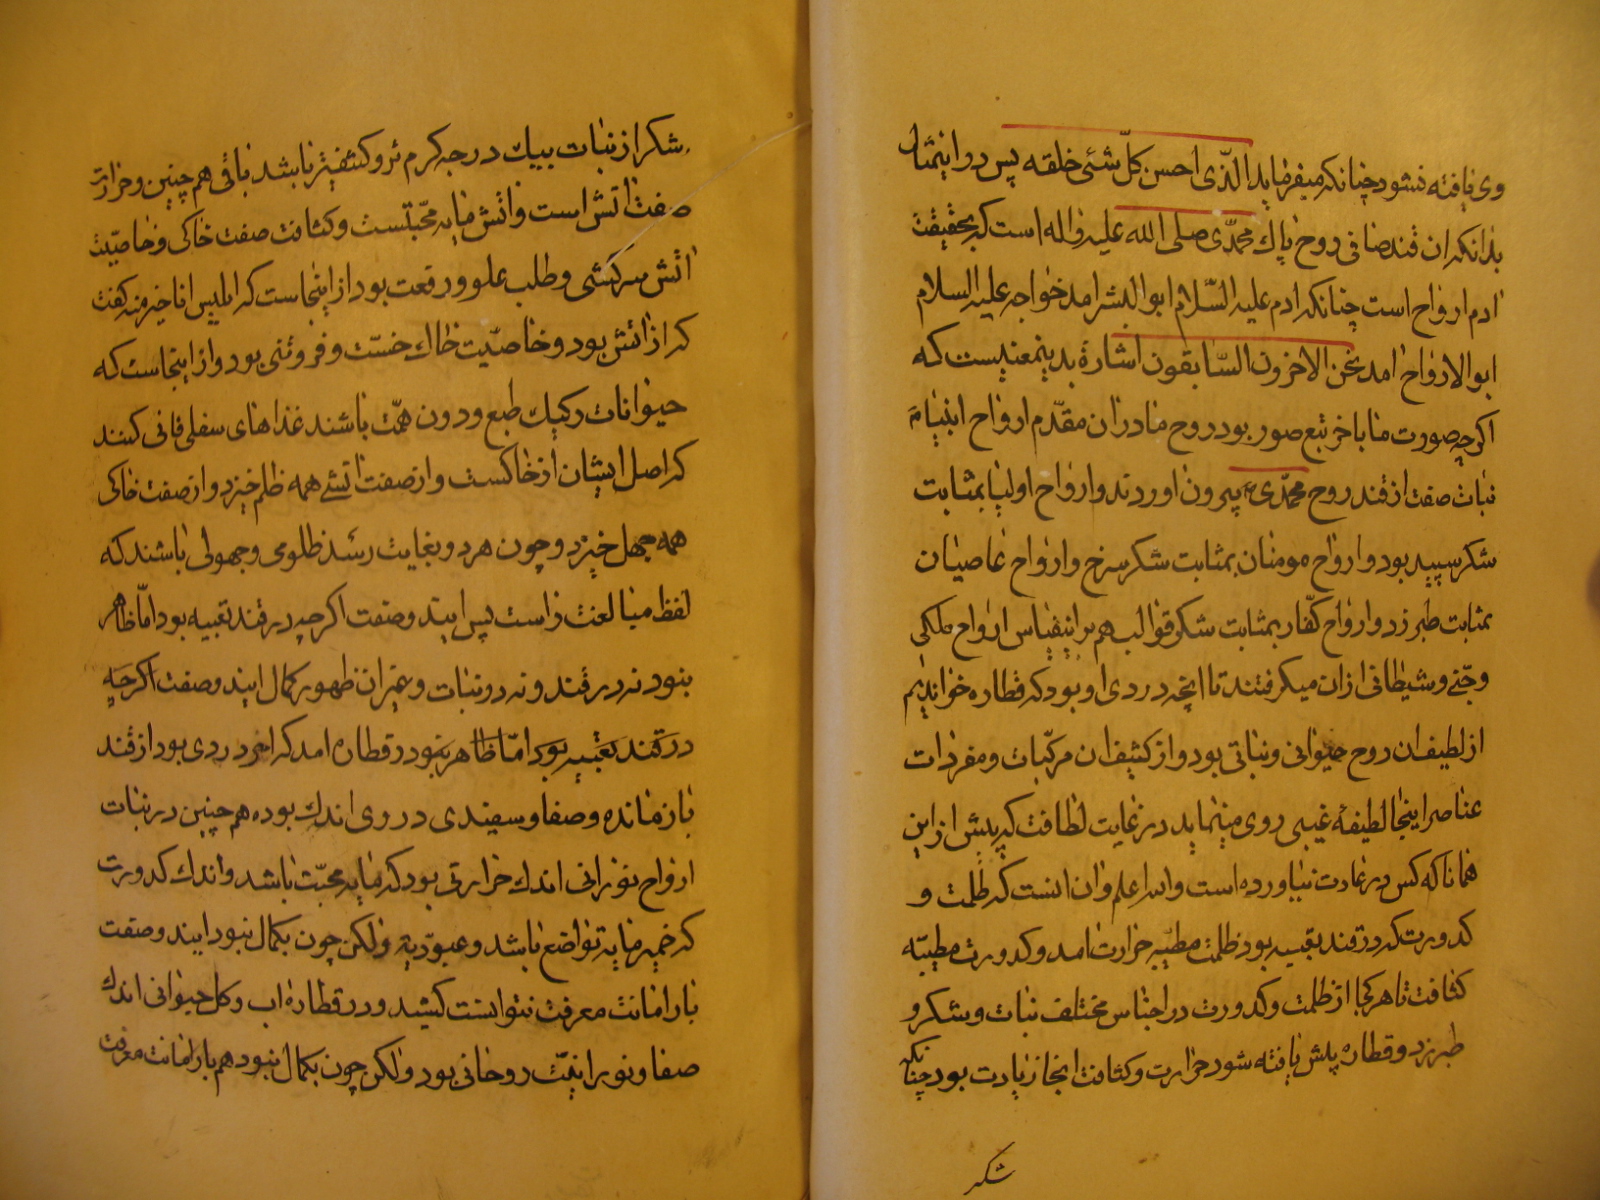 وی یافته نشود چنانکه میفرماید الّذی احسن کلّ شئی خلقه پس در اینمثال
بدانکه ان قند صافی روح پاك محمّدی صلی الله علیه واله است که بحقیقت
ادم ارواح است چنانکه ادم علیه السّلام ابوالبشر امد خواجه علیه السلام
ابوالارواح امد نحن الاخرون السّابقون اشارة بدینمعنیست که
اکرچه صورت ما باخر تبع صور بود روح ما دران مقدّم ارواح انبیا م
نبات صفت از قند روح محمّدی بیرون اوردند و ارواح اولیا بمثابت
شکر سپید بود و ارواح مومنان بمثابت شکر سرخ و ارواح عاصیان
بمثابت طبرزد و ارواح کفّار بمثابت شکر قوالب هم براینقیاس ارواح ملکی
و جنّی و شیطانی ازان میکرفتند تا انچه دردی او بود که قطاره خواندیم
از لطیف ان روح حیوانی و نباتی بود و از کثیف ان مرکّبات و مفردات
عناصر اینجا لطیفهٔ غیبی روی مینماید در غایت لطافت که پیش ازین
همانا که کس در عادت نیاورده است والله اعلم و ان انست که ظلمت و
کدورت که در قند تعبیه بود ظلمت مطیّه حرارت امد و کدورت مطیّه
کثافت تا هر کجا از ظلمت و کدورت در اجناس مختلف نبات و شکر و
طبرزد و قطاره پیش یافته شود حرارت و کثافت انجا زیادت بود چنانکه
شکر
شکر از نبات بیك درجه کرم تر و کثیفتر باشد باقی هم چنین و حرارت
صفت اتش است و اتش مایه محبّتست و کثافت صفت خاکی و خاصیّت
اتش سرکشی و طلب علو و رفعت بود از اینجاست که ابلیس انا خیر منه کفت
که از اتش بود و خاصّیت خاك خسّت و فروتنی بود و از اینجاست که
حیوانات رکیك طبع و دون همّت باشند غذاهای سفلی فانی کنند
که اصل ایشان از خاکست و از صفت اتشی همه ظلم خیزد و از صفت خاکی
همه جهل خیزد و چون هر دو بغایت رسد ظلومی و جهولی باشند که
لفظ مبالغت راست پس ایند وصفت اکرچه در قند تعبیه بود امّا ظاهر
نبود نه در قند و نه در نبات و غیر ان ظهور کمال ایند وصفت اکرچه
در قند تعبیه بود امّا ظاهر نبود در قطاره امد که اخر دردی بود از قند
باز مانده و صفا و سفیدی در وی اندك بوده هم چنین در نبات
ارواح نورانی اندك حرارتی بود که مایه محبّت باشد و اندك کدورت
که خمیر مایهٔ تواضع باشد و عبودّیة ولکن چون بکمال نبود ایند وصفت
بار امانت معرفت نتوانست کشید و در قطاره اب و کل حیوانی اندك
صفا و نورانیّت روحانی بود ولکن چون بکمال نبود هم بار امانت معرفت